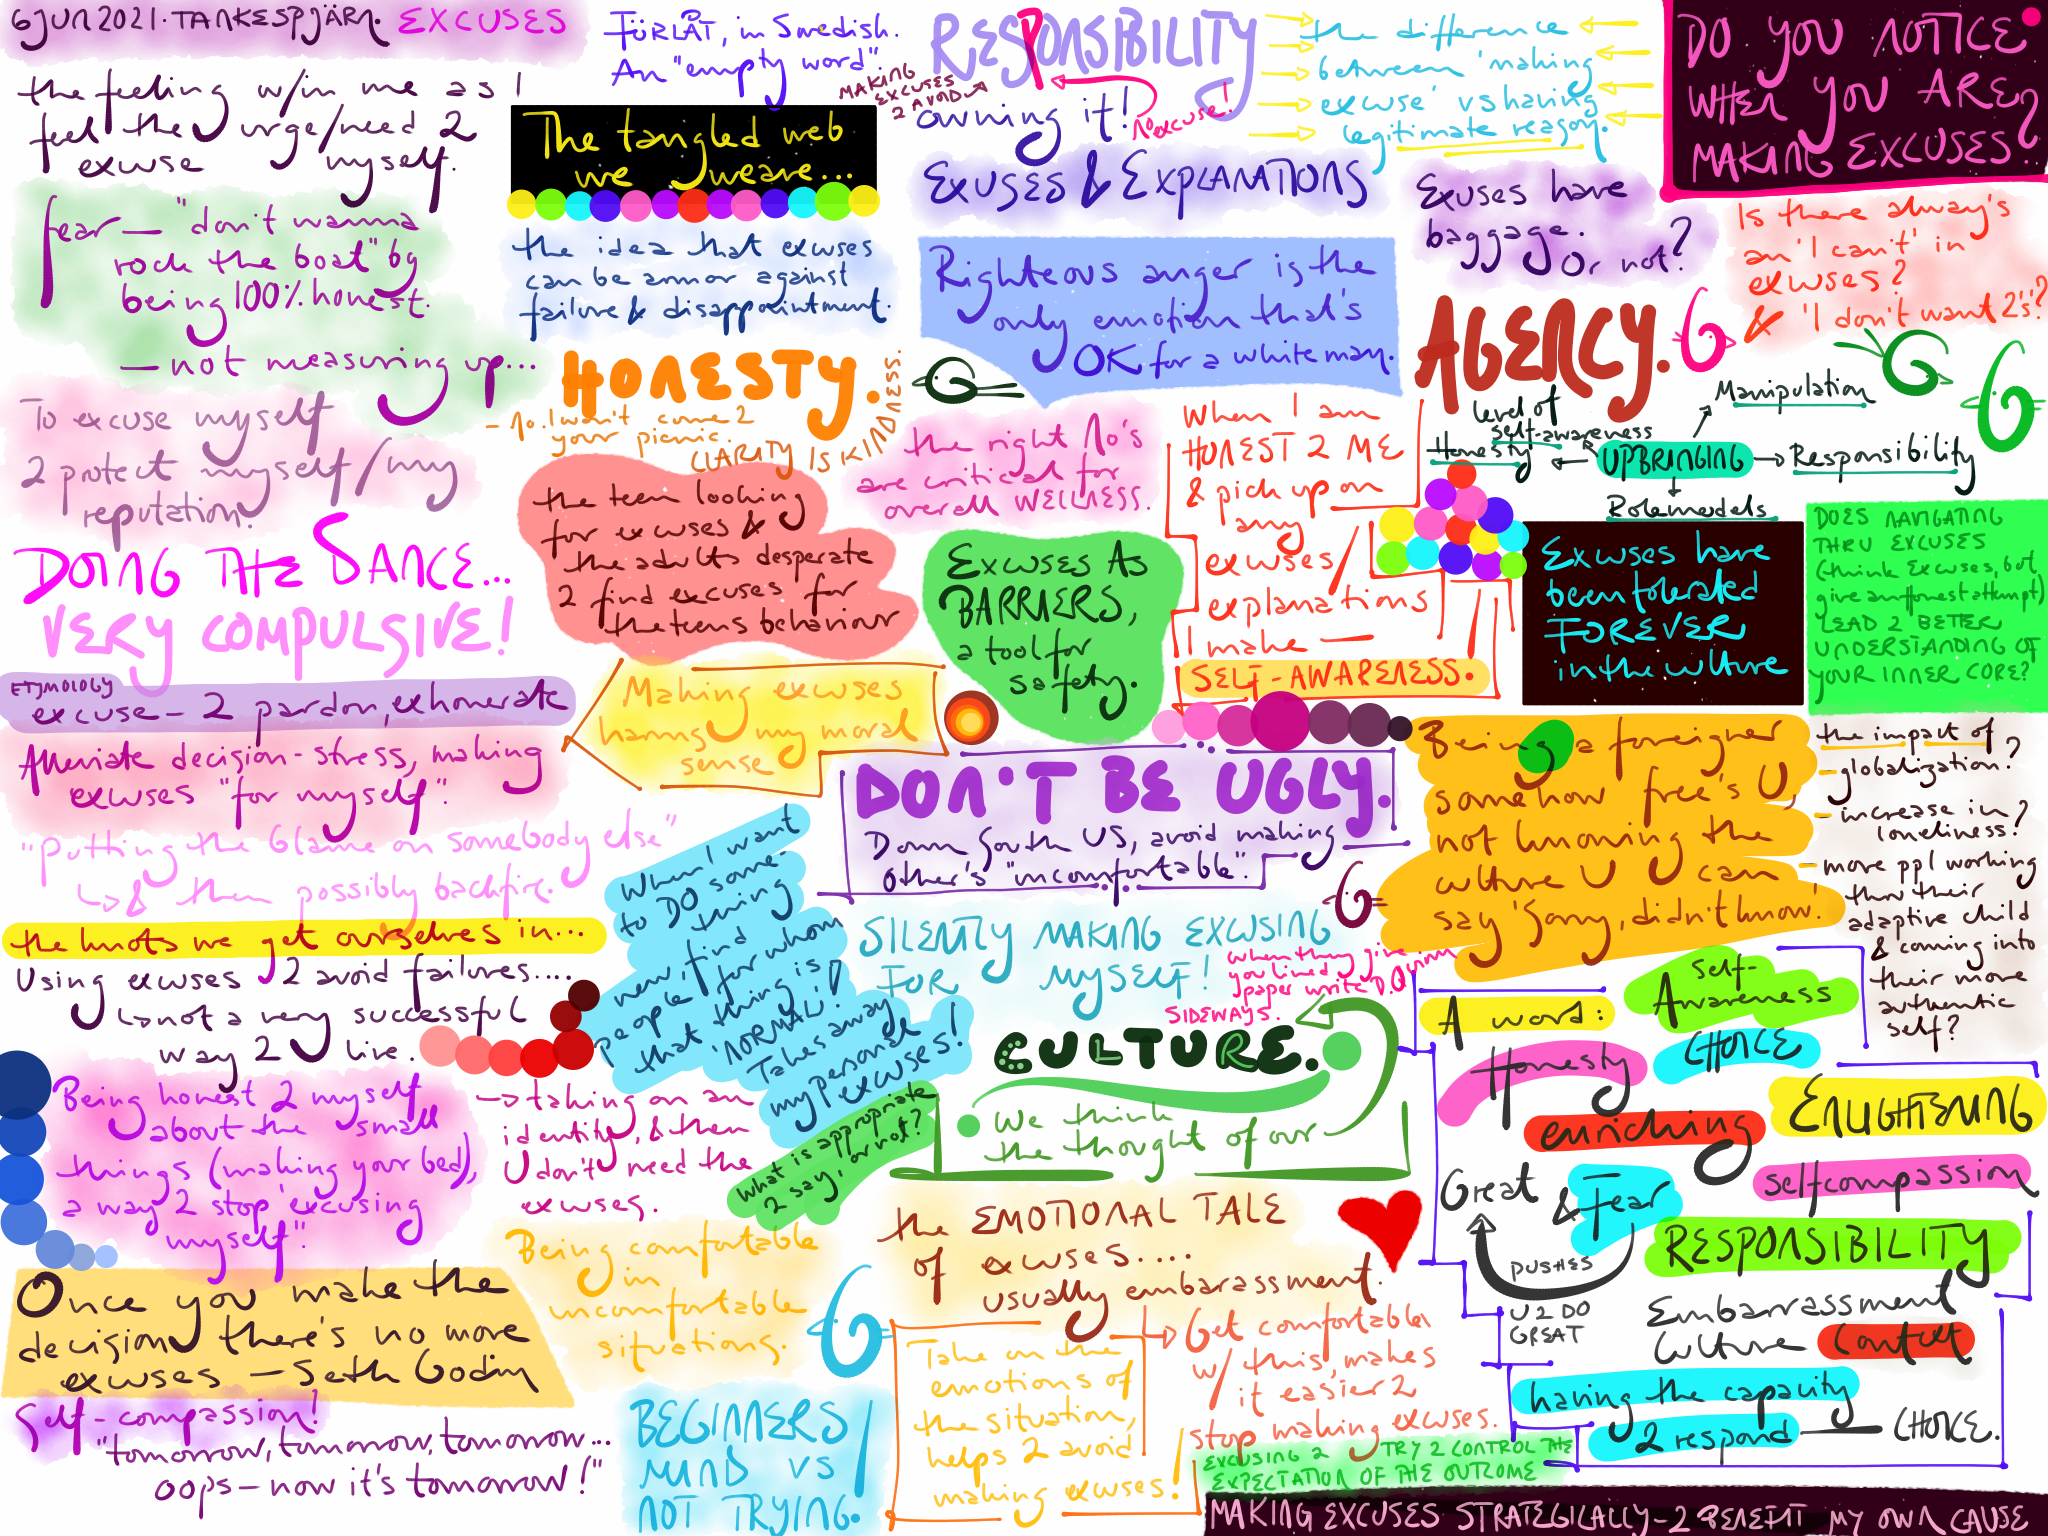 6 JUN 2021 · TANKESPJÄRN. EXCUSES
the feeling w/in me as I
feel the urge/need 2
excuse myself.
fear — "don't wanna
rock the boat" by
being 100% honest.
— not measuring up...
To excuse myself
2 protect myself/my
reputation.
DOING THE DANCE...
VERY COMPULSIVE!
ETYMOLOGY
excuse — 2 pardon, exhonerate
Alleviate decision-stress, making
excuses "for myself".
"putting the blame on somebody else"
↳ & then possibly backfire.
the knots we get ourselves in...
Using excuses 2 avoid failures....
↳ not a very successful
way 2 live.
Being honest 2 myself
about the small
things (making your bed),
a way 2 stop "excusing
myself".
Once you make the
decision there's no more
excuses — Seth Godin
Self-compassion!
"tomorrow, tomorrow, tomorrow...
oops — now it's tomorrow!"
FÖRLÅT, in Swedish.
An "empty word".
The tangled web
we weave...
the idea that excuses
can be armor against
failure & disappointment.
HONESTY.
- No. I won't come 2
your picnic.
CLARITY IS KINDNESS.
the teen looking
for excuses &
the adults desperate
2 find excuses for
the teens behaviour
Making excuses
harms my moral
sense
When I want
to DO some-
thing
new, find
people for whom
that thing is
'NORMAL'!
Takes away
my personal
excuses!
→ taking on an
identity, & then
U don't need the
excuses.
What is appropriate
2 say, or not?
Being comfortable
in
uncomfortable
situations.
BEGINNERS
MIND VS
NOT TRYING.
MAKING
EXCUSES
2 AVOID →
RESPONSIBILITY
owning it!
No excuse!
the difference
between 'making
excuse' vs having
legitimate reason.
EXUSES & EXPLANATIONS
Righteous anger is the
only emotion that's
OK for a white man.
the right No's
are critical for
overall WELLNESS.
EXCUSES AS
BARRIERS,
a tool for
safety.
When I am
HONEST 2 ME
& pick up on
any
excuses/
explanations
I make —
SELF-AWARENESS.
DON'T BE UGLY.
Down South US, avoid making
other's "uncomfortable".
SILENTLY MAKING EXCUSING
FOR MYSELF!
When they give
you lined
paper write
SIDEWAYS.
D. Quinn
CULTURE.
We think
the thought of our
the EMOTIONAL TALE
of excuses....
usually embarassment.
↳ Get comfortable
w/ this, makes
it easier 2
stop making excuses.
Take on the
emotions of
the situation,
helps 2 avoid
making excuses!
EXCUSING 2 TRY 2 CONTROL THE
EXPECTATION OF THE OUTCOME
MAKING EXCUSES STRATEGICALLY - 2 BENEFIT MY OWN CAUSE
DO YOU NOTICE
WHEN YOU ARE
MAKING EXCUSES?
Exuses have
baggage.
Or not?
Is there alway's
an 'I can't' in
excuses?
& 'I don't want 2's'?
AGENCY.
level of
self-awareness
Manipulation
Honesty
UPBRINGING
Responsibility
Rolemodels
Excuses have
been tolerated
FOREVER
in the culture
DOES NAVIGATING
THRU EXCUSES
(think excuses, but
give an honest attempt)
LEAD 2 BETTER
UNDERSTANDING OF
YOUR INNER CORE?
Being a foreigner
somehow free's U,
not knowing the
culture U U can
say 'Sorry, didn't know'.
the impact of
- globalization?
- increase in
loneliness?
- more ppl working
thru their
adaptive child
& coming into
their more
authentic
self?
A word:
Self-
Awareness
Honesty
CHOICE
enriching
ENLIGHTENING
Great & Fear
PUSHES
U 2 DO
GREAT
selfcompassion
RESPONSIBILITY
Embarrassment
Culture
having the capacity
2 respond — CHOICE.